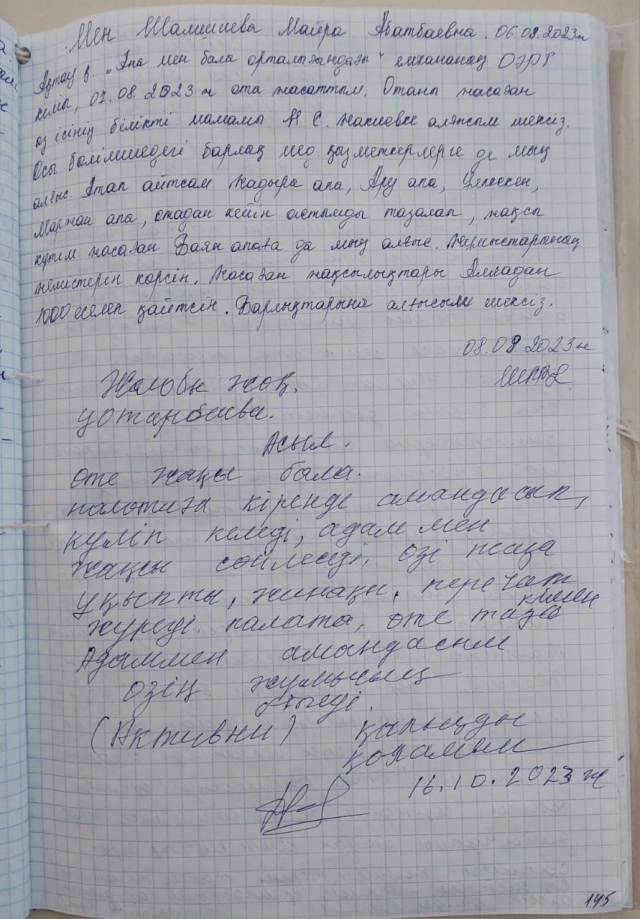 Мен Шамшиева Майра Абатбаевна. 06.08.2023ж
Ақтау қ. "Ана мен бала орталығындағы" емхананың
07.08.2023 ж ота жасаттым. Отаны жасаған
өз ісінің білікті маманы Н С. алғысым шексіз.
Осы бөлімшедегі барлық мед қызметкерлерге де мың
алғыс. Атап айтсам Жадыра апа, Ару апа,
Маржан апа, отадан кейін астымды тазалап, жақсы
күтім жасаған Баян апаға да мың алғыс.
жемістерін көрсін. Жасаған жақсылықтары Алладан
1000 еселеп қайтсін. Барлықтарына алғысым шексіз.
08.08.2023ж
Жалобы жоқ.
Асыл.
өте жақсы бала.
палатаға кіргенде амандасып,
күліп келеді, адаммен
жақсы сөйлеседі, өзі таза
ұқыпты, жинақы, перчат
кимен
жүреді. палата, өте таза
Адаммен амандасып
өзің жұмысың
(Активни)
16.10.2023 ж
145